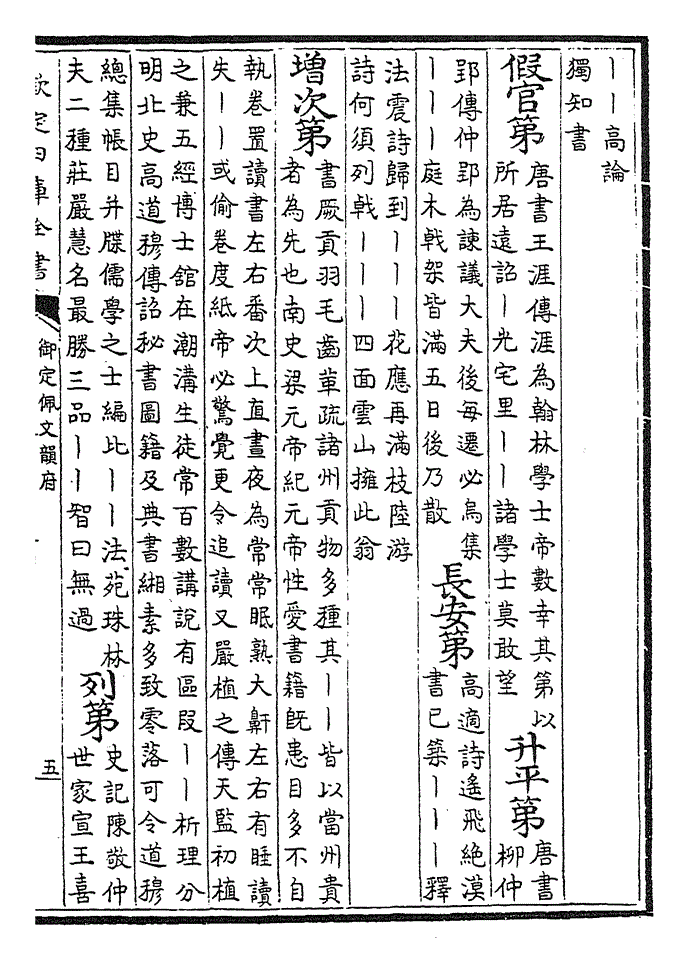 ——高論
獨知書
假官第
唐書王涯傳涯為翰林學士帝數幸其第以
所居遠詔—光宅里——諸學士莫敢望
升平第
唐書
柳仲
郢傳仲郢為諫議大夫後每遷必烏集
———庭木戟架皆滿五日後乃散
長安第
高適詩遙飛絶漠
書已築———釋
法震詩歸到———花應再滿枝陸游
詩何須列戟———四面雲山擁此翁
增次第
書厥貢羽毛齒革疏諸州貢物多種其——皆以當州貴
者為先也南史梁元帝紀元帝性愛書籍既患目多不自
執卷置讀書左右番次上直晝夜為常常眠熟大鼾左右有睡讀
失——或偷卷度紙帝必驚覺更令追讀又嚴植之傳天監初植
之兼五經博士館在潮溝生徒常百數講說有區段——析理分
明北史高道穆傳詔秘書圖籍及典書緗素多致零落可令道穆
總集帳目并牒儒學之士編比——法苑珠林
夫二種莊嚴慧名最勝三品——智曰無過
列第
史記陳敬仲
世家宣王喜
欽定四庫全書
御定佩文韻府
五